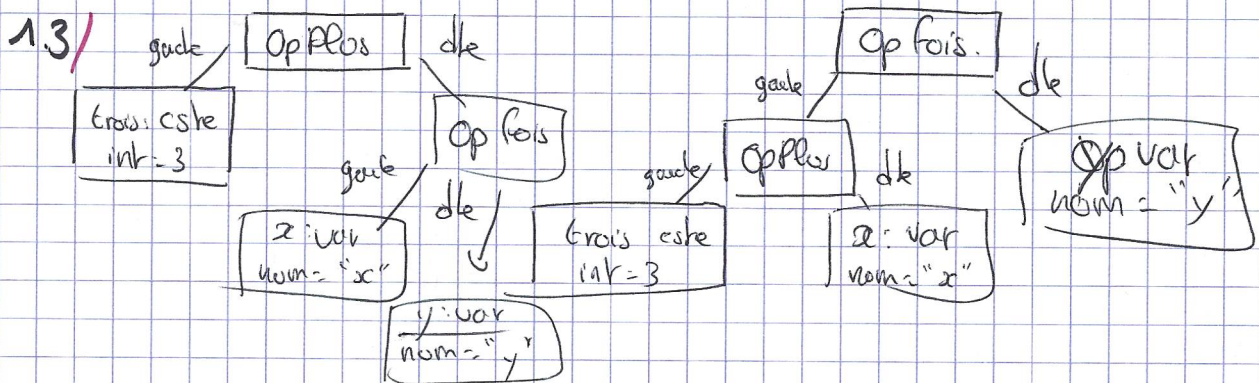 1.3/
gauche
OpPlus
dte
trois: cste
int = 3
Op fois
gauche
dte
x : var
nom = "x"
y : var
nom = "y"
Op fois.
gauche
dte
OpPlus
gauche
dte
trois cste
int = 3
x : var
nom = "x"
var
nom = "y"